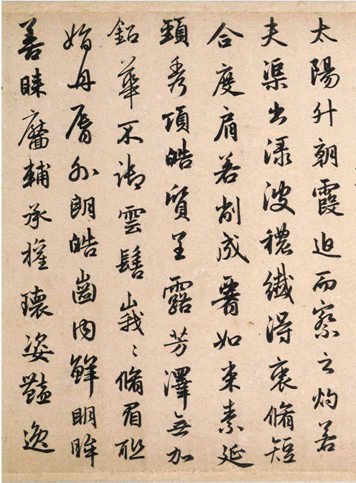 太陽升朝霞迫而察之灼若
夫渠出渌波穠纖得衷脩短
合度肩若削成要如束素延
頸秀項皓質呈露芳澤無加
鉛華不御雲髻峩〻脩眉聯
娟丹脣外朗皓齒内鮮明眸
善睞靨輔承權瓌姿豔逸